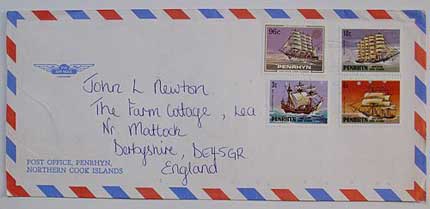 96c
PENRHYN
PENRHYN
PENRHYN
PENRHYN
John L Newton
The Farm Cottage, Lea
Nr Matlock
Derbyshire, DE45GR
England
POST OFFICE, PENRHYN,
NORTHERN COOK ISLANDS